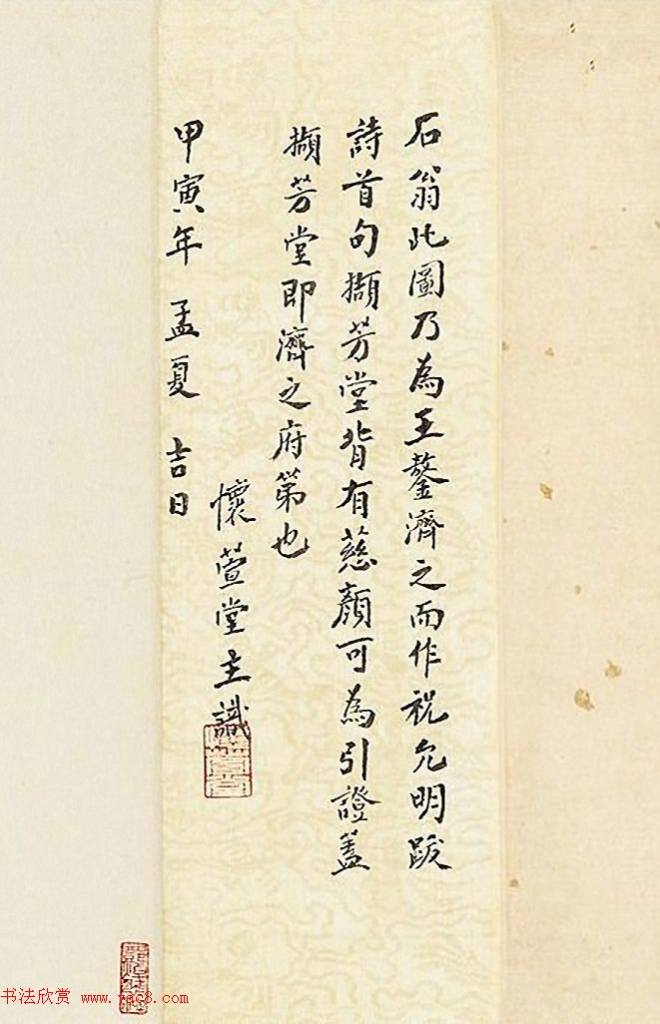 石翁此圖乃為王鏊濟之而作祝允明跋
詩首句擷芳堂背有慈顏可為引證蓋
擷芳堂即濟之府第也
懷萱堂主識
甲寅年 孟夏 吉日
书法欣赏 www.yac8.com